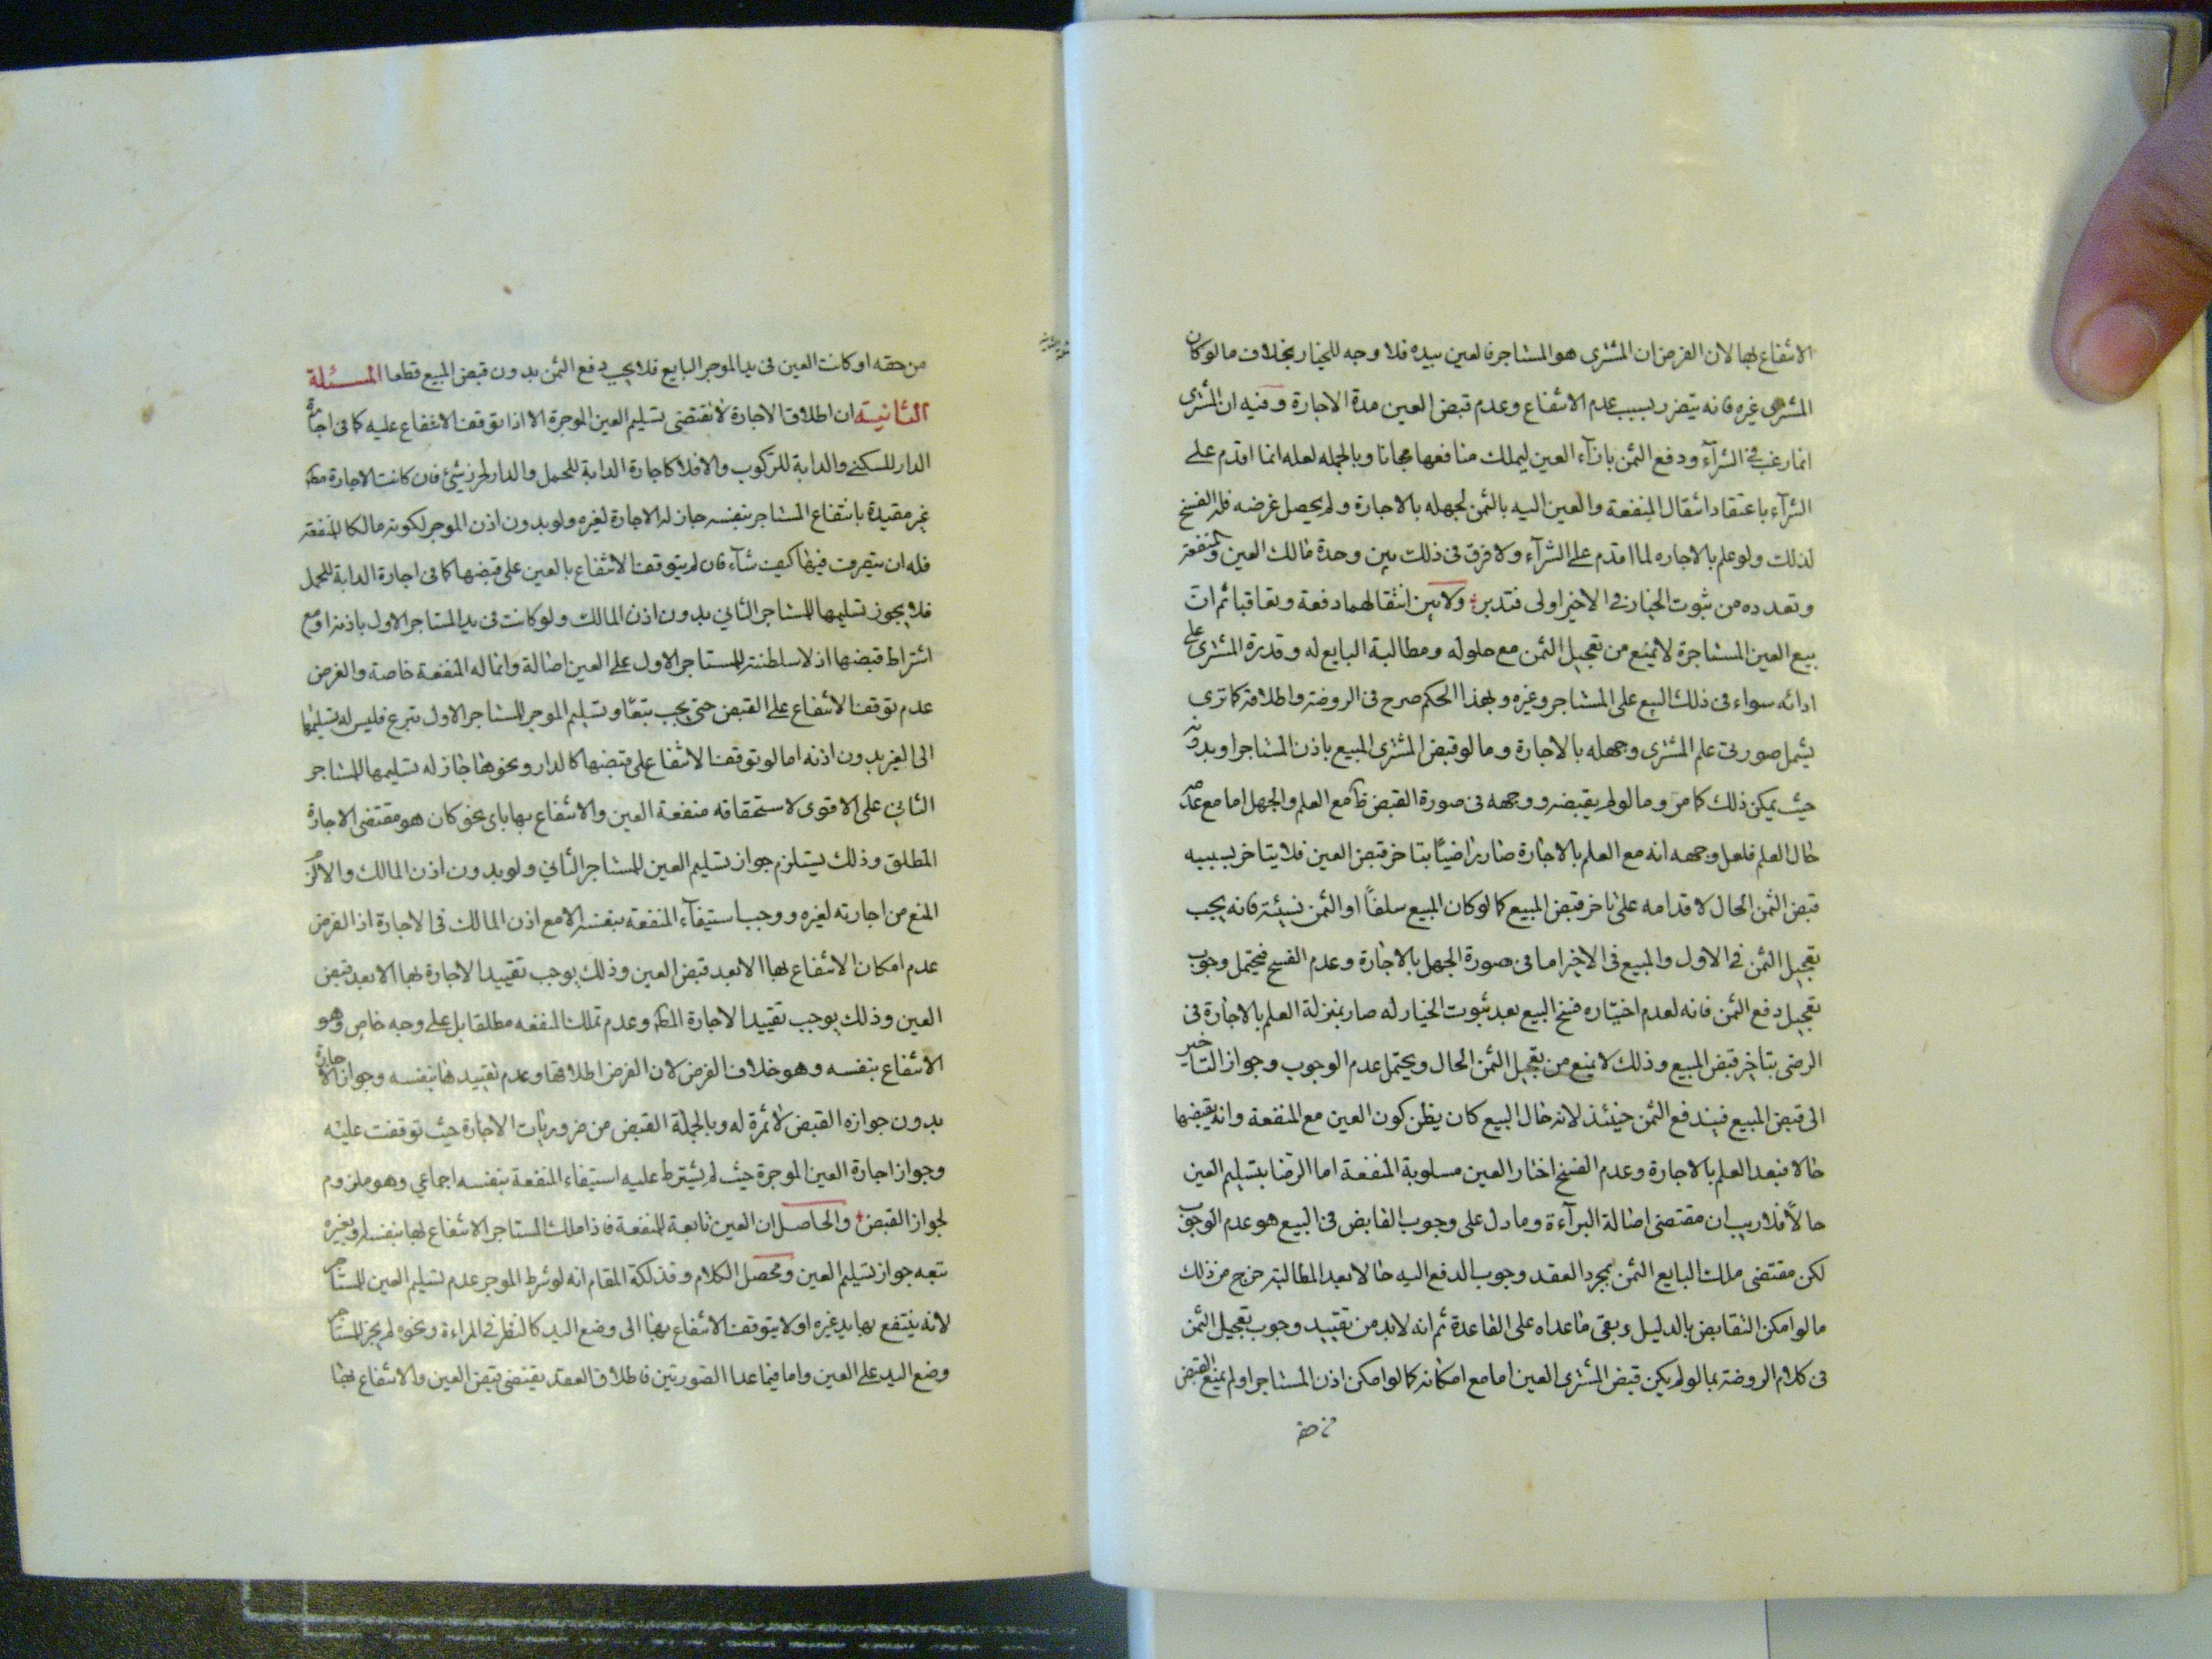 الانتفاع بها لان الفرض ان المشتری هو المستاجر فالعین بیده فلا وجه للخیار بخلاف ما لو کان
المشتری غیره فانه یتضرر بسبب عدم الانتفاع وعدم قبض العین مدة الاجارة وفیه ان المشتری
انما رغب فی الشرآء ودفع الثمن بازآء العین لیملک منافعها مجانا وبالجمله لعله انما اقدم علی
الشرآء باعتقاد انتقال المنفعة والعین الیه بالثمن لجهله بالاجارة ولم یحصل غرضه فله الفسخ
لذلک ولو علم بالاجاره لما اقدم علی الشرآء ولا فرق فی ذلک بین وحدة مالک العین والمنفعة
وتعدده من ثبوت الخیار فی الاخیر اولی فتدبر ولا بین انتقالهما دفعة وتعاقبا ثم ان
بیع العین المستاجرة لا یمنع من تعجیل الثمن مع حلوله ومطالبة البایع له وقدرة المشتری علی
ادائه سواء فی ذلک البیع علی المستاجر وغیره وبهذا الحکم صرح فی الروضة واطلاقه کما تری
یشمل صورتی علم المشتری وجهله بالاجارة وما لو قبض المشتری المبیع باذن المستاجر او بدونه
حیث یمکن ذلک کما مر وما لو لم یقبضه ووجهه فی صورة القبض ظ مع العلم والجهل اما مع عدمه
حال العلم فلعل وجهه انه مع العلم بالاجارة صار راضیًا بتاخر قبض العین فلا یتاخر بسببه
قبض الثمن الحال لاقدامه علی تاخر قبض المبیع کما لو کان المبیع سلفًا او الثمن نسیئة فانه یجب
تعجیل الثمن فی الاول والمبیع فی الاخیر اما فی صورة الجهل بالاجارة وعدم الفسخ فیحتمل وجوب
تعجیل دفع الثمن فانه لعدم اختیاره فسخ البیع بعد ثبوت الخیار له صار بمنزلة العلم بالاجارة فی
الرضی بتاخیر قبض المبیع وذلک لا یمنع من تعجیل الثمن الحال ویحتمل عدم الوجوب وجواز التاخیر
الی قبض المبیع فیدفع الثمن حینئذ لانه حال البیع کان یظن کون العین مع المنفعة وانه یقبضها
حالا فبعد العلم بالاجارة وعدم الفسخ اختار العین مسلوبة المنفعة اما الرضا بتسلیم العین
حالًا فلا ریب ان مقتضی اصالة البرآءة وما دل علی وجوب التقابض فی البیع هو عدم الوجوب
لکن مقتضی ملک البایع الثمن بمجرد العقد وجوب الدفع الیه حالا بعد المطالبة خرج من ذلک
ما لو امکن التقابض بالدلیل وبقی ما عداه علی القاعدة ثم انه لا بد من تقیید وجوب تعجیل الثمن
فی کلام الروضة بما لو لم یکن قبض المشتری العین اما مع امکانه کما لو امکن اذن المستاجر او لم یمنع القبض
من حقه
من حقه او کانت العین فی ید الموجر البایع فلا یجب دفع الثمن بدون قبض المبیع قطعا المسئلة
الثانیة ان اطلاق الاجارة لا تقتضی تسلیم العین الموجرة الا اذا توقف الانتفاع علیه کما فی اجارة
الدار للسکنی والدابة للرکوب والا فلا کاجارة الدابة للحمل والدار لحرز شیئ فان کانت الاجارة مطلقة
غیر مقیدة بانتفاع المستاجر بنفسه جاز له الاجارة لغیره ولو بدون اذن الموجر لکونه مالکا للمنفعة
فله ان یتصرف فیها کیف شآء فان لم یتوقف الانتفاع بالعین علی قبضها کما فی اجارة الدابة للحمل
فلا یجوز تسلیمها للمستاجر الثانی بدون اذن المالک ولو کانت فی ید المستاجر الاول باذنه او مع
اشتراط قبضها اذ لا سلطنة للمستاجر الاول علی العین اصالة وانما له المنفعة خاصة والفرض
عدم توقف الانتفاع علی القبض حتی یجب تبعًا وتسلیم الموجر للمستاجر الاول تبرع فلیس له تسلیمها
الی الغیر بدون اذنه اما لو توقف الانتفاع علی قبضها کالدار ونحوها جاز له تسلیمها للمستاجر
الثانی علی الاقوی لاستحقاقه منفعة العین والانتفاع بها بای نحو کان هو مقتضی الاجارة
المطلق وذلک یستلزم جواز تسلیم العین للمستاجر الثانی ولو بدون اذن المالک والا لزم
المنع من اجارته لغیره ووجب استیفآء المنفعة بنفسه الا مع اذن المالک فی الاجارة اذ الفرض
عدم امکان الانتفاع بها الا بعد قبض العین وذلک یوجب تقیید الاجارة بها الا بعد قبض
العین وذلک یوجب تقیید الاجارة المطلقة وعدم تملک المنفعه مطلقا بل علی وجه خاص وهو
الانتفاع بنفسه وهو خلاف الفرض لان الفرض اطلاقها وعدم تقییدها بنفسه وجواز الاجارة
بدون جوازه القبض لا ثمرة له وبالجملة القبض من ضروریات الاجارة حیث توقفت علیه
وجواز اجارة العین الموجرة حیث لم یشترط علیه استیفاء المنفعة بنفسه اجماعی وهو ملزوم
لجواز القبض والحاصل ان العین تابعة للمنفعة فاذا ملک المستاجر الانتفاع بها بنفسه وبغیره
تبعه جواز تسلیم العین ومحصل الکلام وفذلکة المقام انه لو شرط الموجر عدم تسلیم العین للمستاجر
لانه ینتفع بها بید غیره او لا یتوقف الانتفاع بها الی وضع الید کالنظر فی المراءة ونحوه لم یجز للمستاجر
وضع الید علی العین واما فیما عدا الصورتین فاطلاق العقد یقتضی قبض العین والانتفاع بها